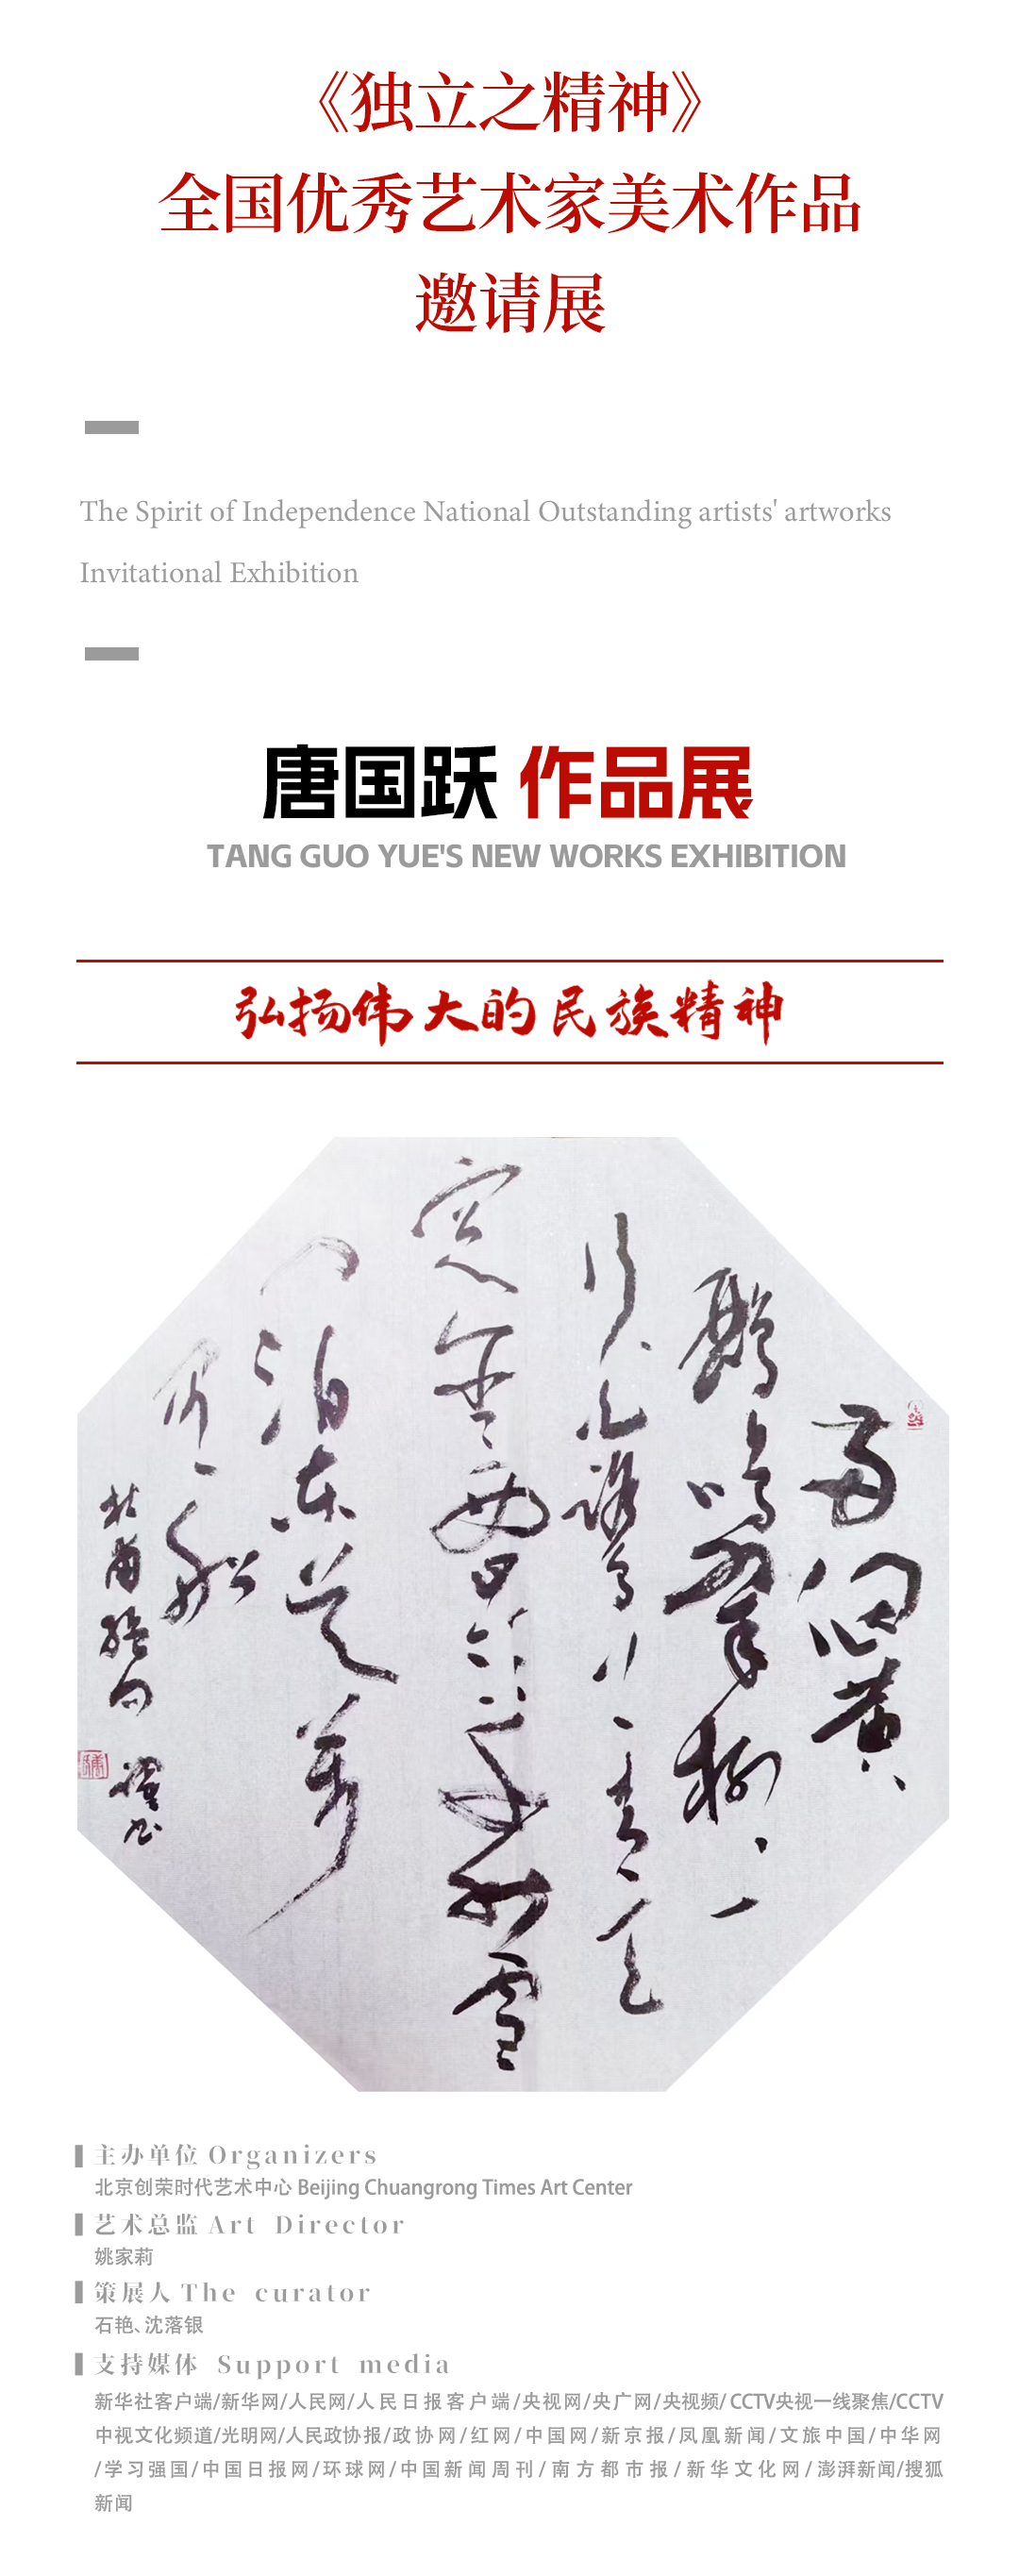 《独立之精神》
全国优秀艺术家美术作品
邀请展
The Spirit of Independence National Outstanding artists' artworks
Invitational Exhibition
唐国跃 作品展
TANG GUO YUE'S NEW WORKS EXHIBITION
弘扬伟大的民族精神
两個黄
鹂鸣翠柳一
行白鹭上青天
窗含西岭千秋雪
门泊东吴万
里船
杜甫绝句
主办单位 Organizers
北京创荣时代艺术中心 Beijing Chuangrong Times Art Center
艺术总监 Art Director
姚家莉
策展人 The curator
石艳、沈落银
支持媒体 Support media
新华社客户端/新华网/人民网/人民日报客户端/央视网/央广网/央视频/ CCTV央视一线聚焦/CCTV
中视文化频道/光明网/人民政协报/政协网/红网/中国网/新京报/凤凰新闻/文旅中国/中华网
/学习强国/中国日报网/环球网/中国新闻周刊/南方都市报/新华文化网/澎湃新闻/搜狐
新闻